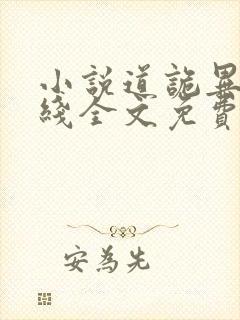 小說道詭異
綫全文免費
安為先